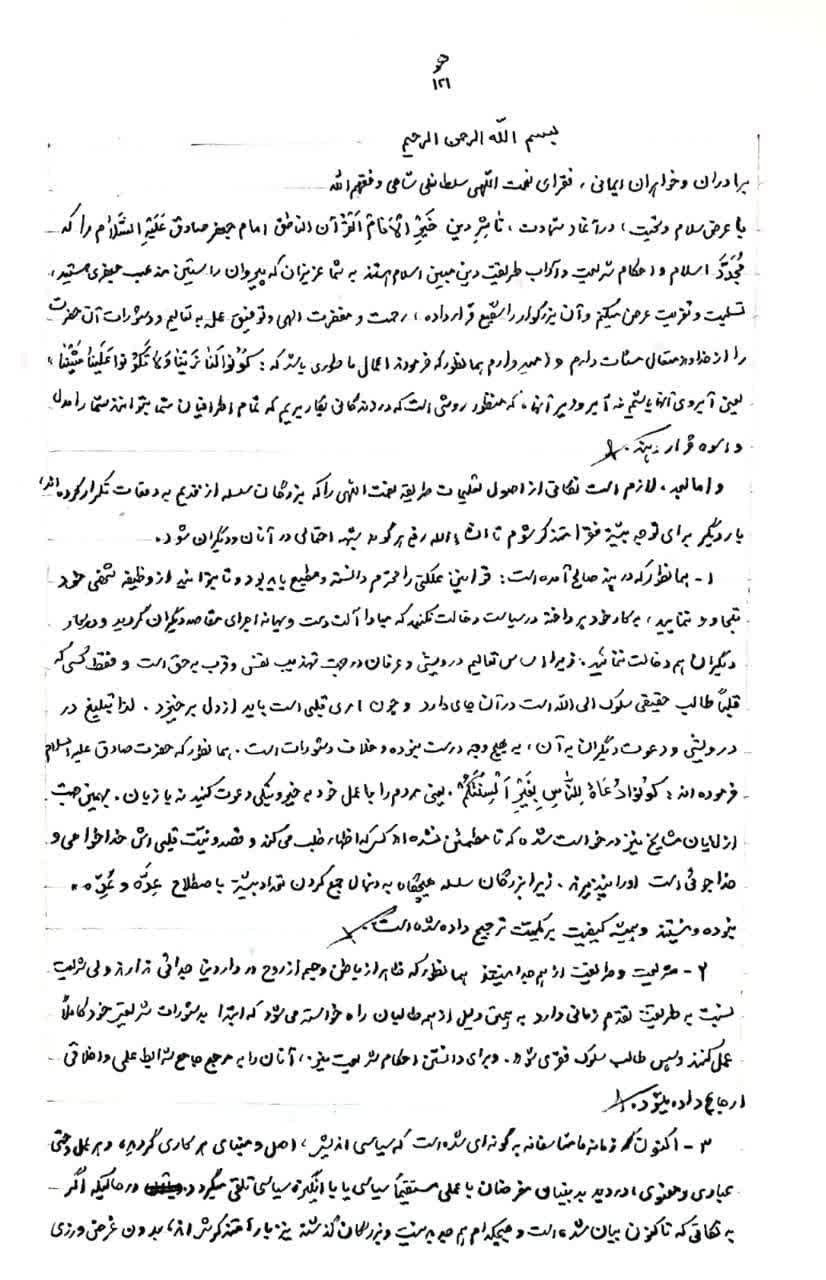 هو
۱۲۱
بسم الله الرحمن الرحیم
برادران و خواهران ایمانی، فقرای نعمت اللهی سلطانعلی شاهی وفقهم الله
با عرض سلام و تحیت، در آغاز شهادت، ناشر دین خَیرِ الاَنامْ اَلقُرآن الناطق امام جعفر صادق عَلَیهِ السَّلام را که
مُجَدِّد اسلام و احکام شریعت و آداب طریقت دین مبین اسلام هستند به شما عزیزان که پیروان راستین مذهب جعفری هستید،
تسلیت و تعزیت عرض میکنم و آن بزرگوار را شفیع قرار داده، رحمت و مغفرت الهی و توفیق عمل به تعالیم و دستورات آن حضرت
را از خداوند متعال مسئلت دارم و امیدوارم همانطور که فرمودند اعمال ما طوری باشد که: کُونُوا لَنا زَیناً وَ لا تَکُونُوا عَلَینا شَیْناً،
یعنی آبروی آنها باشیم نه آبروبر آنها، که منظور روشی است که در زندگانی بکار بریم که تمام اطرافیان شما بتوانند شما را مدل
و اسوه قرار دهند.
و اما بعد، لازم است نکاتی از اصول تعلیمات طریقه نعمت اللهی را که بزرگان سلسله از قدیم به دفعات تکرار کرده‌اند،
بار دیگر برای توجه بیشتر فقرا متذکر شوم تا انشاءالله رفع هرگونه شبهه احتمالی در آنان و دیگران شود.
۱- همانطور که در پند صالح آمده است: قوانین مملکتی را محترم دانسته و مطیع باید بود و تا میتوانید از وظیفه شخصی خود
تجاوز ننمایید، به کار خود پرداخته در سیاست دخالت نکنید که مبادا آلت دست و بهانه اجرای مقاصد دیگران گردید و در کار
دیگران هم دخالت ننمائید. زیرا اساس تعالیم درویشی و عرفان در جهت تهذیب نفس و قرب به حق است و فقط کسی که
قلباً طالب حقیقی سلوک الی الله است در آن جای دارد و چون امری قلبی است باید از دل برخیزد. لذا تبلیغ در
درویشی و دعوت دیگران به آن، به هیچ وجه درست نبوده و خلاف دستورات است. همانطور که حضرت صادق علیه السلام
فرموده اند: کُونُوا دُعاةً لِلنّاسِ بِغَیرِ اَلسِنَتِکُمْ. یعنی مردم را با عمل خود به خیر و نیکی دعوت کنید نه با زبان. بهمین جهت
از آقایان مشایخ نیز درخواست شده که تا مطمئن نشده‌اند کسی که اظهار طلب می‌کند و قصد و نیت قلبی اش خداخواهی و
خداجوئی است او را نپذیرند. زیرا بزرگان سلسله هیچگاه به دنبال جمع کردن تعداد بیشتر با صطلاح عِدّه و عُدّه
نبوده و نیستند و همیشه کیفیت بر کمیت ترجیح داده شده است.
۲- شریعت و طریقت از هم جدا نیستند همانطور که ظاهر از باطن و جسم از روح در دار دنیا جدائی ندارند ولی شریعت
نسبت به طریقت تقدم زمانی دارد به همین دلیل از همه طالبان راه خواسته می‌شود که ابتدا به دستورات شریعتی خود کاملاً
عمل کنند و سپس طالب سلوک فقری شوند. و برای دانستن احکام شریعت نیز، آنان را به مرجع جامع شرایط علمی و اخلاقی
ارجاع داده میشود.
۳- اکنون که زمانه ما متاسفانه به گونه‌ای شده است که سیاسی اندیشی، اصل و مبنای هر کاری گردیده، و هر عمل و حتی
عبادی و معنوی، در دید بدبینان و مغرضان یا عملی مستقیماً سیاسی یا با انگیزه سیاسی تلقی میگردد در حالیکه اگر
به نکاتی که تاکنون بیان شده است و هیچکدام هم جدید نیست و بزرگان گذشته نیز بارها متذکر شده‌اند، بدون غرض ورزی